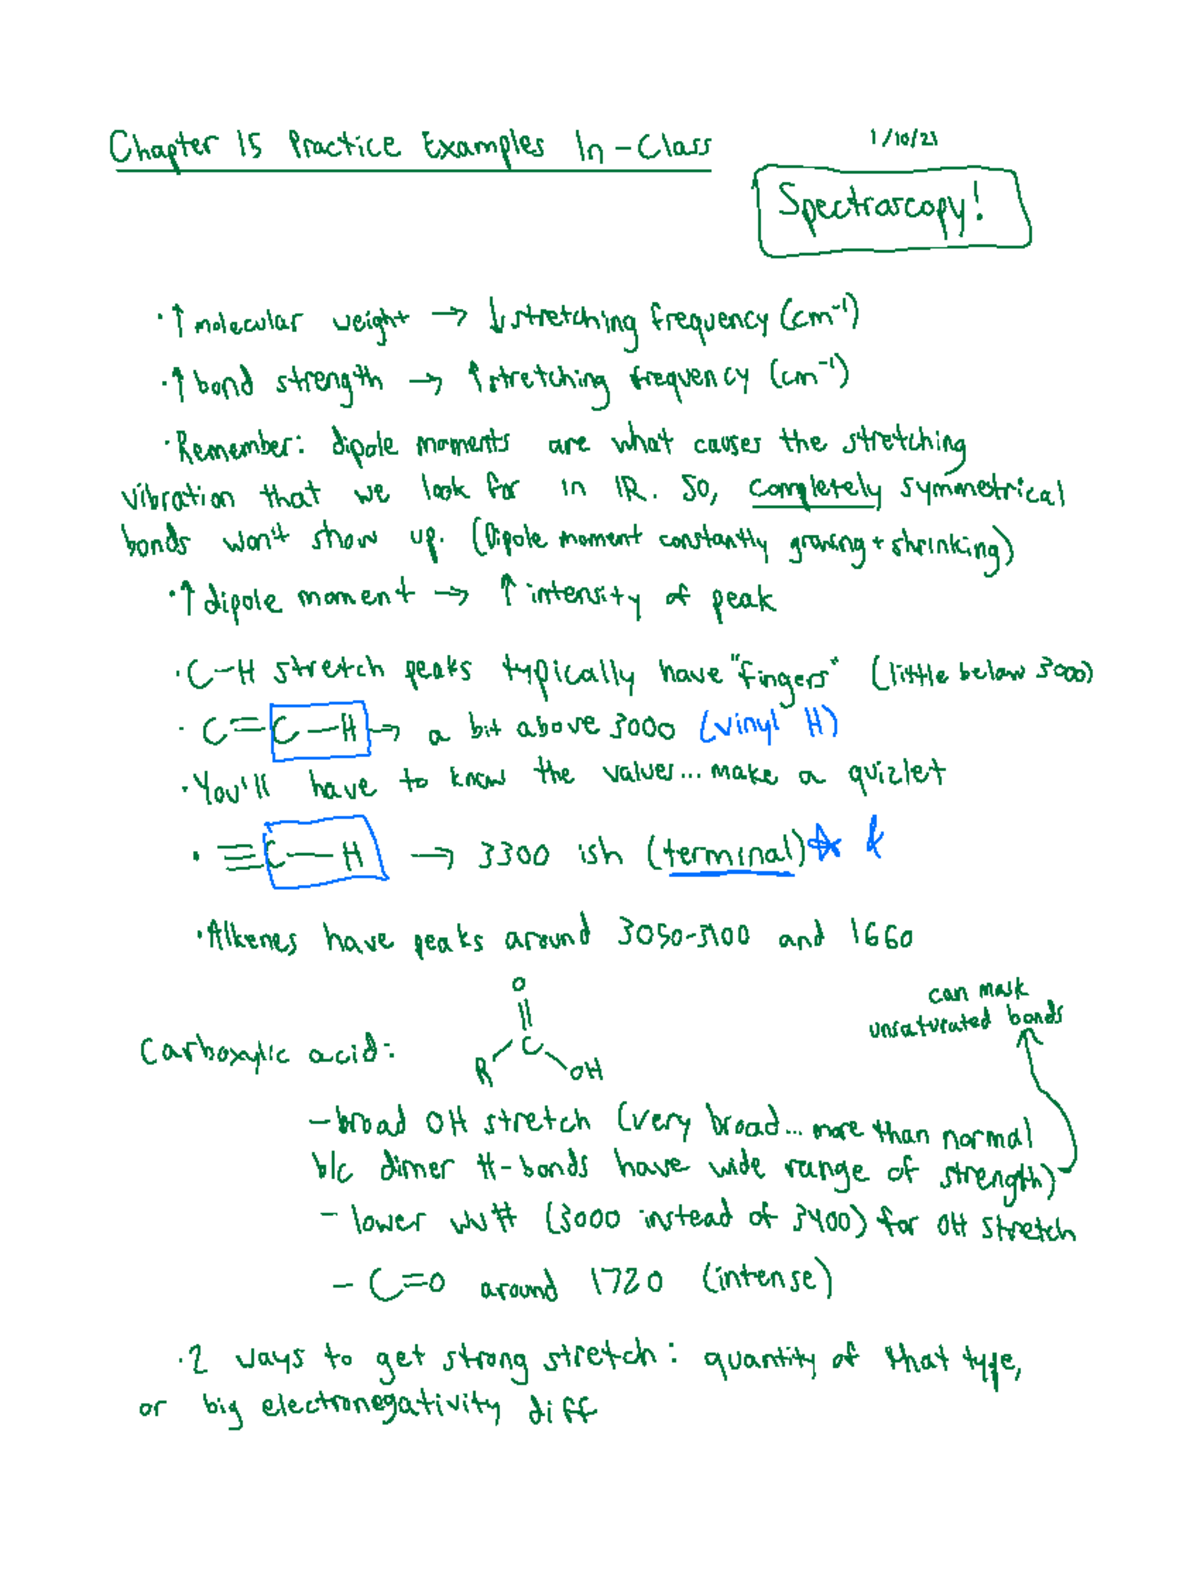 Chapter 15 Practice Examples In-Class
1/10/21
Spectroscopy!
· ↑ molecular weight → ↓ stretching frequency (cm⁻¹)
· ↑ bond strength → ↑ stretching frequency (cm⁻¹)
· Remember: dipole moments are what causes the stretching
vibration that we look for in IR. So, completely symmetrical
bonds won't show up. (Dipole moment constantly growing + shrinking)
· ↑ dipole moment → ↑ intensity of peak
· C-H stretch peaks typically have "fingers" (little below 3000)
· C=C-H → a bit above 3000 (vinyl H)
· You'll have to know the values... make a quizlet
· ≡C-H → 3300 ish (terminal) ☆
· Alkenes have peaks around 3050-3100 and 1660
can mask
unsaturated bonds
O
||
Carboxylic acid: R C OH
- broad OH stretch (very broad... more than normal
b/c dimer H-bonds have wide range of strength)
- lower wv# (3000 instead of 3400) for OH stretch
- C=O around 1720 (intense)
· 2 ways to get strong stretch: quantity of that type,
or big electronegativity diff